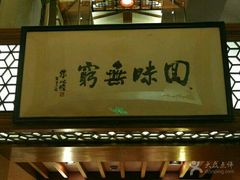 回味無窮
大众点评
dianping.com